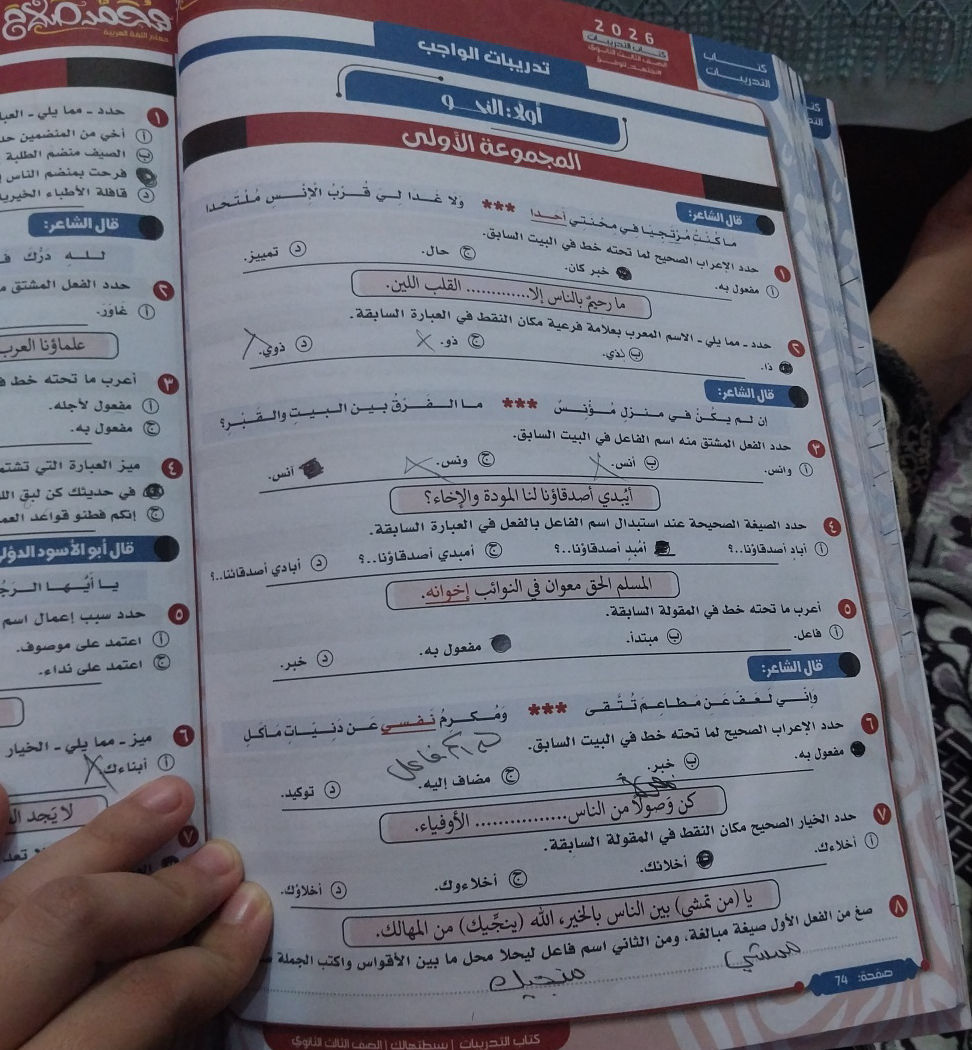 2026
كتاب التدريبات
الصف الثالث الثانوي
كتاب التدريبات
تدريبات الواجب
أولًا: النحو
المجموعة الأولى
قال الشاعر:
ما كُنتُ مُرْتَجِيًا في مِحْنَتي أحدا *** ولا غَدا لِيَ قُرْبُ الإنْسِ مُلْتَحدا
١ حدد الإعراب الصحيح لما تحته خط في البيت السابق.
أ مفعول به.
خبر كان.
ج حال.
د تمييز.
ما رحيمٌ بالناس إلا ............. القلب اللين.
٢ حدد - مما يلي - الاسم المعرب بعلامة فرعية مكان النقط في العبارة السابقة.
ذا.
ب لذي.
ج ذو.
د ذوي.
قال الشاعر:
إن لم يكُنْ في منزلٍ مُؤنسٌ *** ما الفرقُ بين البيتِ والقبْرِ؟
٣ حدد الفعل المشتق منه اسم الفاعل في البيت السابق.
أ وانس.
ب أنس.
ج ونس.
آنس.
أيُبدي أصدقاؤنا لنا المودة والإخاء؟
٤ حدد الصيغة الصحيحة عند استبدال اسم الفاعل بالفعل في العبارة السابقة.
أ أباد أصدقاؤنا..؟
أمُبدٍ أصدقاؤنا..؟
ج أمبدي أصدقاؤنا..؟
د أبادي أصدقائنا..؟
المسلم الحق معوان في النوائب إخوانه.
٥ أعرب ما تحته خط في المقولة السابقة.
أ فاعل.
ب مبتدأ.
مفعول به.
د خبر.
قال الشاعر:
وإنّي لَعَفٌّ عَن مَطاعِمَ تُتَّقى *** ومُكرِمُ نَفسي عَن دَنِيّاتِ مَأكَلِ
٦ حدد الإعراب الصحيح لما تحته خط في البيت السابق.
مفعول به.
ب خبر.
ج مضاف إليه.
د توكيد.
كن وَصولًا من الناس ................ الأوفياء.
٧ حدد الخيار الصحيح مكان النقط في المقولة السابقة.
أ أخلاءك.
أخلائك.
ج أخلاءوك.
د أخلاؤك.
يا (من تمشي) بين الناس بالخير، الله (ينجِّيك) من المهالك.
٨ صغ من الفعل الأول صيغة مبالغة، ومن الثاني اسم فاعل ليحلا محل ما بين الأقواس واكتب الجملة
منجيك
صفحة: 74
كتاب التدريبات | بسطتهالك | الصف الثالث الثانوي
محمد صلاح
معلم اللغة العربية
١ حدد - مما يلي -
أ أخي من المنضمين
ب الصيف منضم الطلبة
فرحت بمنضم الناس
د قافلة الأطباء الخيرية
قال الشاعر:
لله درّك
٢ حدد الفعل المشتق
أ غاوَرَ.
علماؤنا العرب
٣ أعرب ما تحته خط
أ مفعول لأجله.
ج مفعول به.
٤ ميز العبارة التي
في حديثك كن لبق
ج إنكم فطنو قواعد
قال أبو الأسود الدؤلي
يا أيُّها الرجُ
٥ حدد سبب إعمال اسم
أ اعتمد على موصوف.
ج اعتمد على نداء.
٦ ميز - مما يلي - الخيار
أ أبناءك
لا يَجد
٧